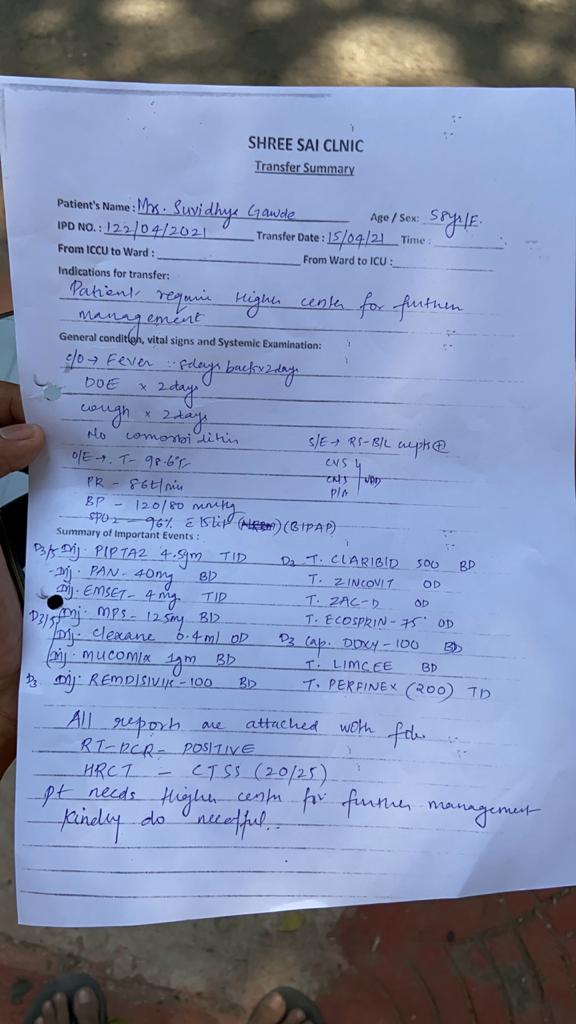 SHREE SAI CLNIC
Transfer Summary
Patient's Name : Mrs. Suvidhya Gawde Age / Sex: 58yrs/F.
IPD NO. : 122/04/2021 Transfer Date : 15/04/21 Time :
From ICCU to Ward : From Ward to ICU :
Indications for transfer:
Patient require Higher center for further
management
General condition, vital signs and Systemic Examination:
c/o → Fever days back x 2days
DOE x 2 days
cough x 2 days
No S/E → RS - B/L
O/E → T - 98.6°F CVS
PR - 86t/min CNS
BP - 120/80 mmHg P/A
SPO2 - 96% (BIPAP)
Summary of Important Events :
Inj. PIPTAZ 4.5gm TID D3 T. CLARIBID 500 BD
Inj. PAN - 40mg BD T. ZINCOVIT OD
Inj. EMSET - 4 mg TID T. ZAC-D OD
D3/5 Inj. MPS - 125mg BD T. ECOSPRIN - 75 OD
Inj. Clexane 0.4ml OD D3 Cap. DOXY - 100 BD
Inj. MUCOMIX 1gm BD T. LIMCEE BD
D3 Inj. REMDISIVIR - 100 BD T. PERFINEX (200) TD
All reports are attached with file
RT-PCR - POSITIVE
HRCT - CTSS (20/25)
Pt needs Higher center for further management
Kindly do needful..